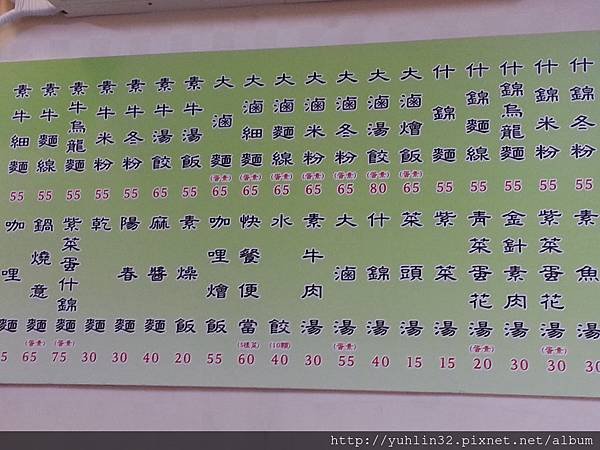 素牛細麵 55
素牛麵線 55
素牛烏龍麵 55
素牛米粉 55
素牛冬粉 55
素牛湯餃 65
素牛湯飯 55
大滷麵 (蛋素) 65
大滷細麵 (蛋素) 65
大滷麵線 (蛋素) 65
大滷米粉 (蛋素) 65
大滷冬粉 (蛋素) 65
大滷湯餃 (蛋素) 80
大滷燴飯 (蛋素) 65
什錦麵 55
什錦麵線 55
什錦烏龍麵 55
什錦米粉 55
什錦冬粉 55
咖哩麵 5
鍋燒意麵 (蛋素) 65
紫菜蛋什錦麵 (蛋素) 75
乾麵 30
陽春麵 30
麻醬麵 40
素燥飯 20
咖哩燴飯 55
快餐便當 (5樣菜) 60
水餃 (10顆) 40
素牛肉湯 30
大滷湯 (蛋素) 55
什錦湯 40
菜頭湯 15
紫菜湯 15
青菜蛋花湯 (蛋素) 20
金針素肉湯 30
紫菜蛋花湯 (蛋素) 30
素魚湯 30
http://yuhlin32.pixnet.net/album